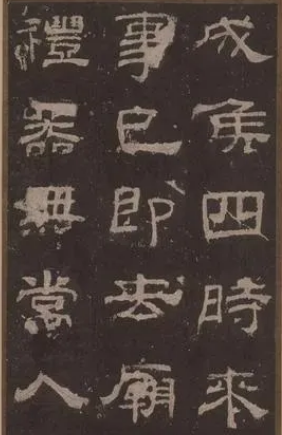 成侯四時來
事已即去廟
禮器無常人